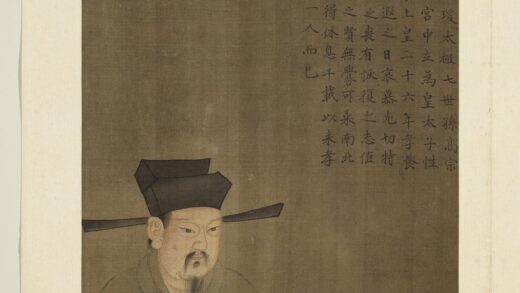 瑗太祖七世孫高宗
宮中立為皇太子性
上皇二十六年孝養
遐之日哀慕尤切特
之喪有恢復之志值
之賢無釁可乘南北
得休息千載以來孝
一人而已